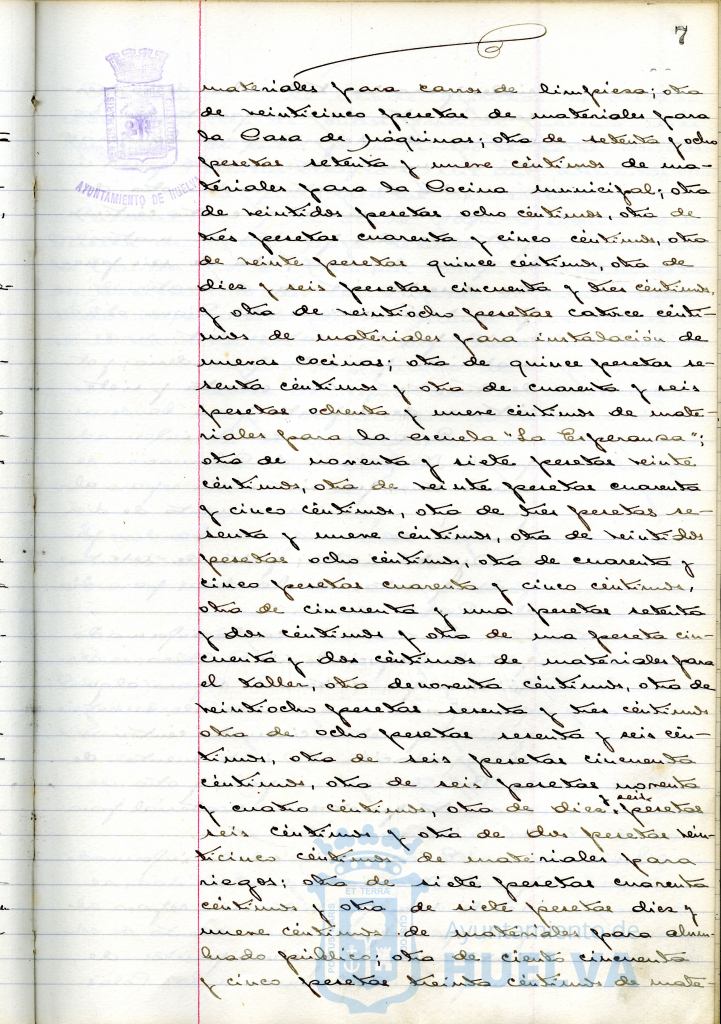 7
AYUNTAMIENTO DE HUELVA
materiales para carros de limpieza; otra
de veinticinco pesetas de materiales para
la Casa de Máquinas; otra de setenta y ocho
pesetas setenta y nueve céntimos de ma-
teriales para la Cocina municipal; otra
de veintidos pesetas ocho céntimos, otra de
tres pesetas cuarenta y cinco céntimos, otra
de veinte pesetas quince céntimos, otra de
diez y seis pesetas cincuenta y tres céntimos,
y otra de veintiocho pesetas catorce cénti-
mos de materiales para instalación de
nuevas cocinas; otra de quince pesetas se-
senta céntimos y otra de cuarenta y seis
pesetas ochenta y nueve céntimos de mate-
riales para la escuela "La Esperanza";
otra de noventa y siete pesetas veinte
céntimos, otra de veinte pesetas cuarenta
y cinco céntimos, otra de tres pesetas se-
senta y nueve céntimos, otra de veintidos
pesetas, ocho céntimos, otra de cuarenta y
cinco pesetas cuarenta y cinco céntimos,
otra de cincuenta y una pesetas setenta
y dos céntimos y otra de una peseta cin-
cuenta y dos céntimos de materiales para
el taller, otra de noventa céntimos, otra de
veintiocho pesetas sesenta y tres céntimos
otra de ocho pesetas sesenta y seis cén-
timos, otra de seis pesetas cincuenta
céntimos, otra de seis pesetas noventa
y cuatro céntimos, otra de diez y seis pesetas
seis céntimos y otra de dos pesetas vein-
ticinco céntimos de materiales para
riegos; otra de siete pesetas cuarenta
céntimos y otra de siete pesetas diez y
nueve céntimos de materiales para alum-
brado público; otra de ciento cincuenta
y cinco pesetas treinta céntimos de mate-
Ayuntamiento de
HUELVA